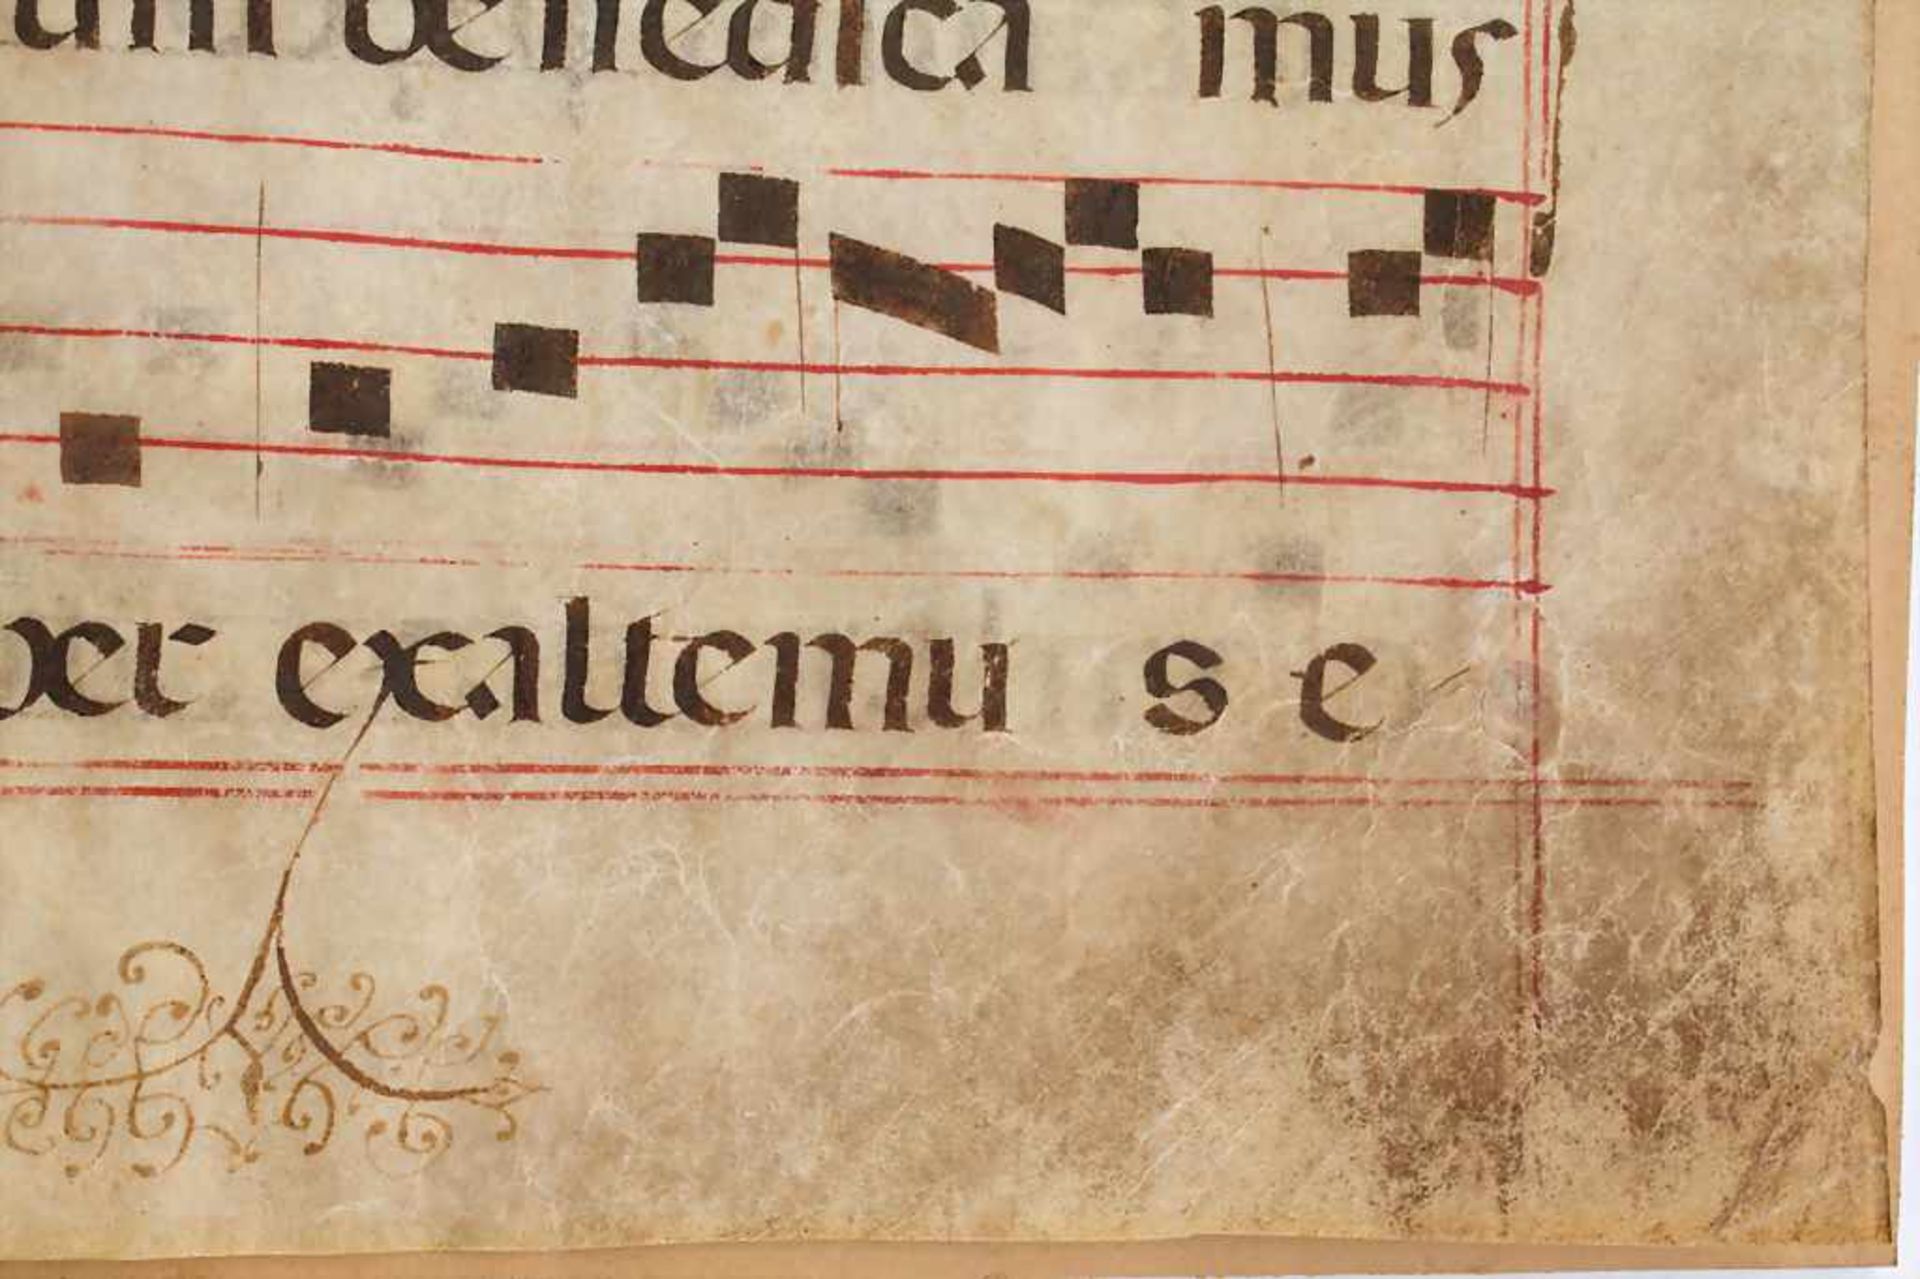 benedica mus
per exaltemu s e